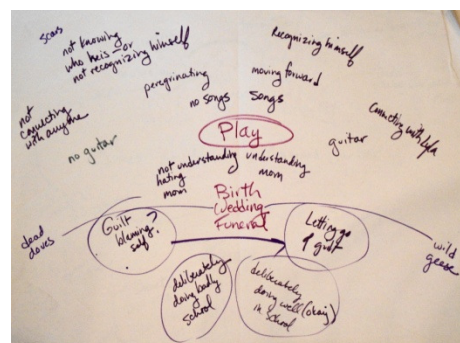 scars
not knowing
who he is - or
not recognizing himself
Recognizing himself
peregrinating
moving forward
no songs
songs
not
connecting
with anyone
connecting with
Play
no guitar
guitar
not understanding
hating
mom
understanding
mom
Birth
Wedding
Funeral
Guilt
blaming
self?
Letting go
of guilt
dead
doves
wild
geese
deliberately
doing badly
school
deliberately
doing well (okay)
in school